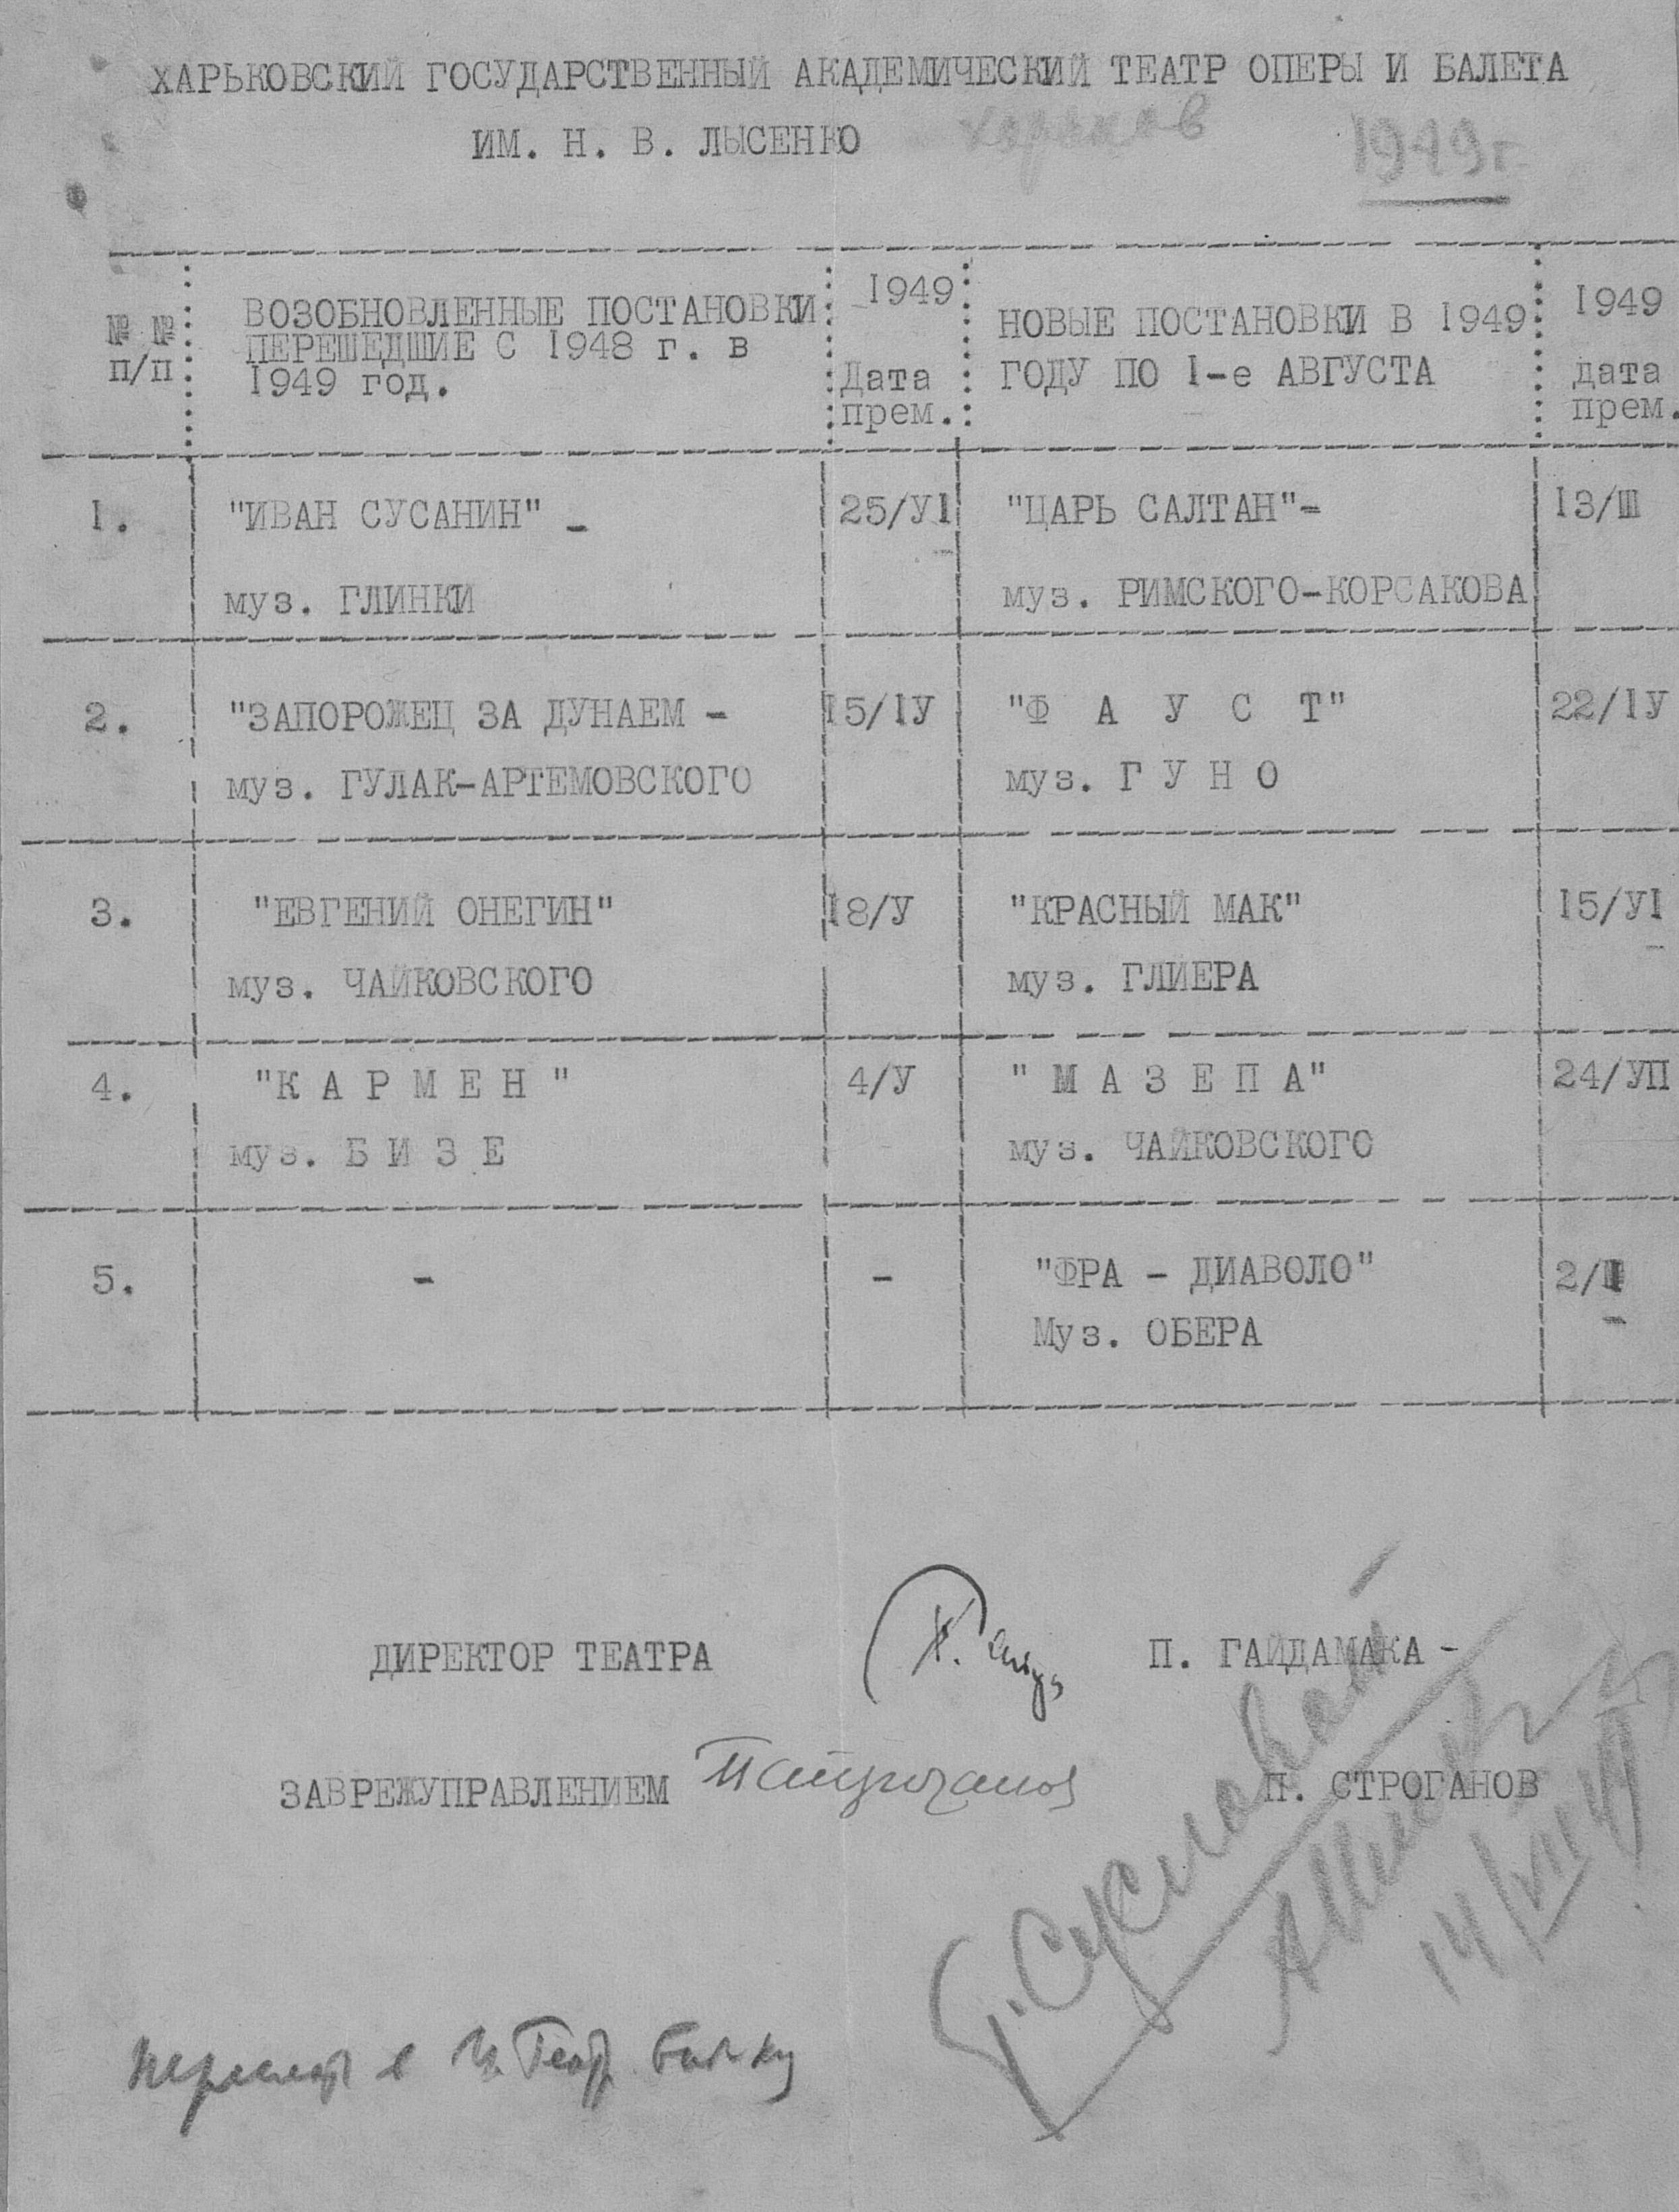 ХАРЬКОВСКИЙ ГОСУДАРСТВЕННЫЙ АКАДЕМИЧЕСКИЙ ТЕАТР ОПЕРЫ И БАЛЕТА
ИМ. Н. В. ЛЫСЕНКО
Харьков 1949 г.
№ № п/п
ВОЗОБНОВЛЕННЫЕ ПОСТАНОВКИ
ПЕРЕШЕДШИЕ С 1948 г. в
1949 год.
1949
Дата
прем.
НОВЫЕ ПОСТАНОВКИ В 1949
ГОДУ ПО 1-е АВГУСТА
1949
дата
прем.
1. "ИВАН СУСАНИН" - 25/У1 "ЦАРЬ САЛТАН"- 13/Ш
муз. ГЛИНКИ муз. РИМСКОГО-КОРСАКОВА
2. "ЗАПОРОЖЕЦ ЗА ДУНАЕМ - 15/1У "Ф А У С Т" 22/1У
муз. ГУЛАК-АРТЕМОВСКОГО муз. Г У Н О
3. "ЕВГЕНИЙ ОНЕГИН" 18/У "КРАСНЫЙ МАК" 15/У1
муз. ЧАЙКОВСКОГО муз. ГЛИЕРА
4. "К А Р М Е Н" 4/У " М А З Е П А" 24/УП
муз. Б И З Е муз. ЧАЙКОВСКОГО
5. - - "ФРА - ДИАВОЛО" 2/
Муз. ОБЕРА
ДИРЕКТОР ТЕАТРА П. ГАЙДАМАКА -
ЗАВРЕЖУПРАВЛЕНИЕМ ПСтроганов П. СТРОГАНОВ
14/VIII